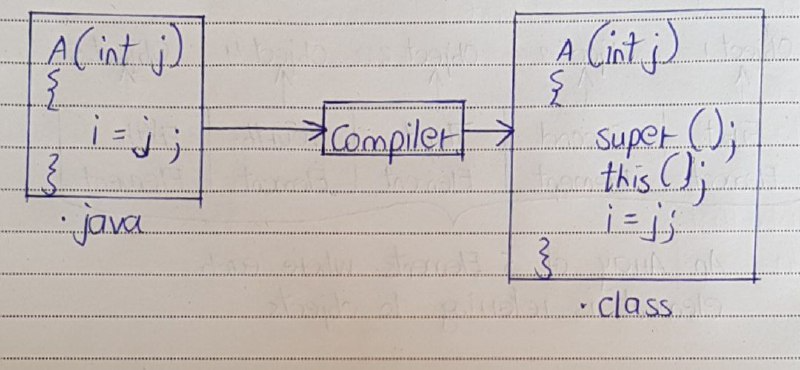 A(int j)
{
i = j;
}
.java
Compiler
A(int j)
{
super();
this();
i = j;
}
.class